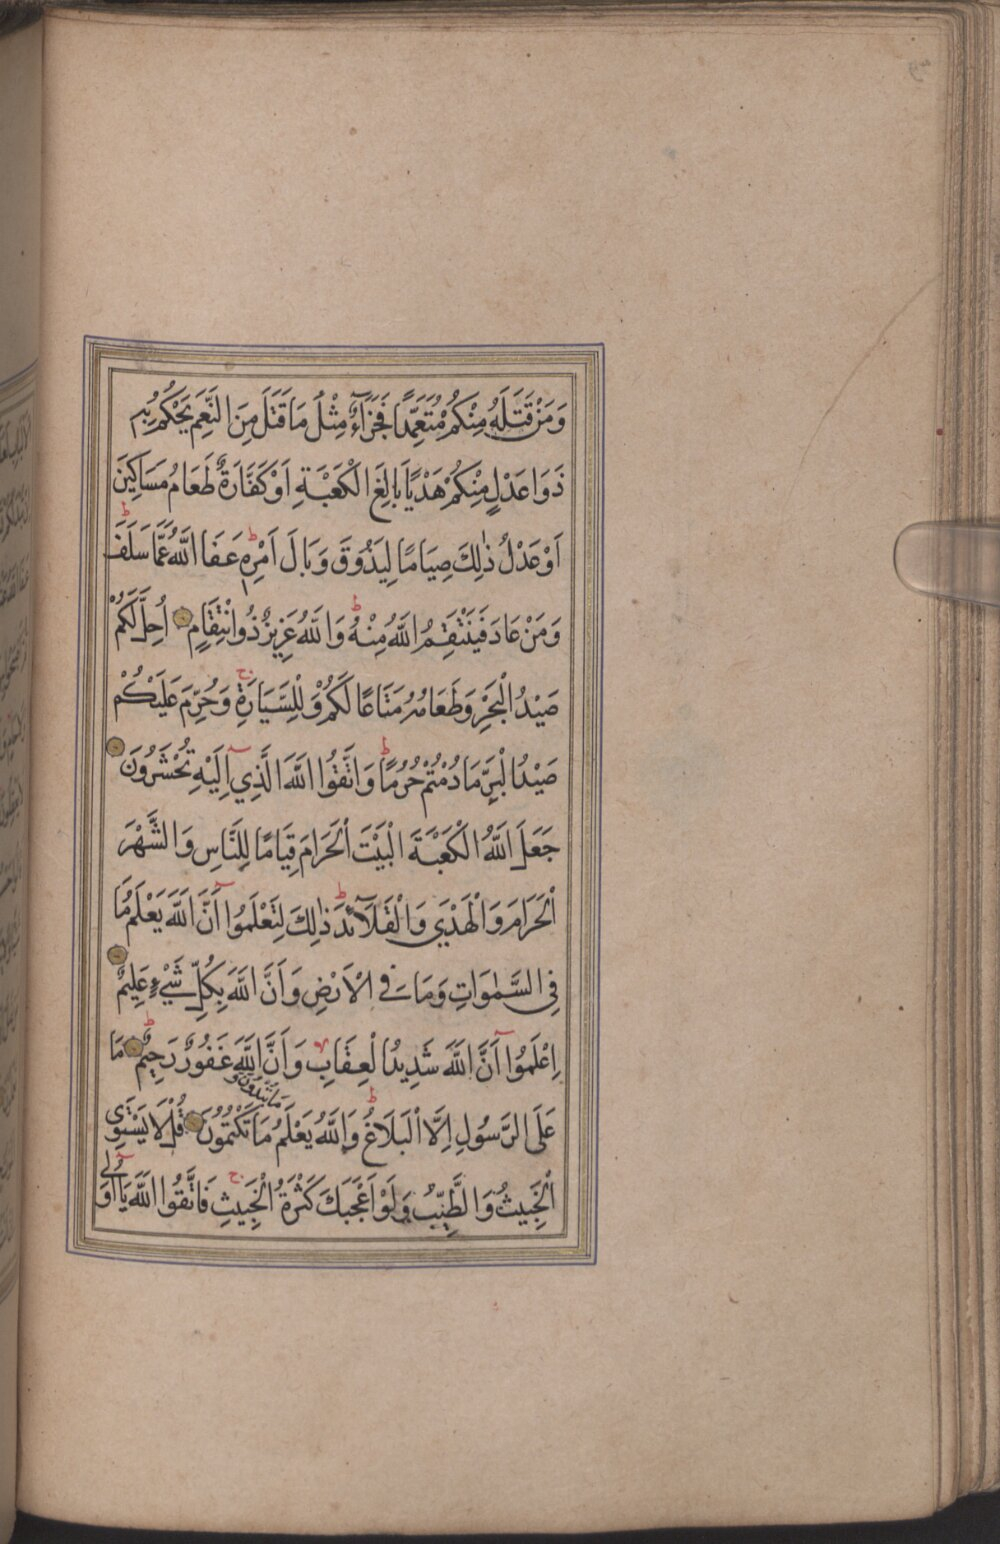 وَمَنْ قَتَلَهُ مِنْكُمْ مُتَعَمِّدًا فَجَزَآءٌ مِثْلُ مَا قَتَلَ مِنَ النَّعَمِ يَحْكُمُ بِهِ
ذَوَا عَدْلٍ مِنْكُمْ هَدْيًا بَالِغَ الْكَعْبَةِ اَوْ كَفَّارَةٌ طَعَامُ مَسَاكِينَ
اَوْ عَدْلُ ذٰلِكَ صِيَامًا لِيَذُوقَ وَبَالَ اَمْرِهِ عَفَا اللّٰهُ عَمَّا سَلَفَ
وَمَنْ عَادَ فَيَنْتَقِمُ اللّٰهُ مِنْهُ وَاللّٰهُ عَزِيزٌ ذُو انْتِقَامٍ اُحِلَّ لَكُمْ
صَيْدُ الْبَحْرِ وَطَعَامُهُ مَتَاعًا لَكُمْ وَلِلسَّيَّارَةِ وَحُرِّمَ عَلَيْكُمْ
صَيْدُ الْبَرِّ مَا دُمْتُمْ حُرُمًا وَاتَّقُوا اللّٰهَ الَّذِي اِلَيْهِ تُحْشَرُونَ
جَعَلَ اللّٰهُ الْكَعْبَةَ الْبَيْتَ الْحَرَامَ قِيَامًا لِلنَّاسِ وَالشَّهْرَ
الْحَرَامَ وَالْهَدْيَ وَالْقَلَآئِدَ ذٰلِكَ لِتَعْلَمُوا أَنَّ اللّٰهَ يَعْلَمُ مَا
فِي السَّمٰوَاتِ وَمَا فِي الْاَرْضِ وَأَنَّ اللّٰهَ بِكُلِّ شَيْءٍ عَلِيمٌ
اِعْلَمُوا أَنَّ اللّٰهَ شَدِيدُ الْعِقَابِ وَأَنَّ اللّٰهَ غَفُورٌ رَحِيمٌ مَا
عَلَى الرَّسُولِ اِلَّا الْبَلَاغُ وَاللّٰهُ يَعْلَمُ مَا تُبْدُونَ وَ مَا تَكْتُمُونَ قُلْ لَا يَسْتَوِي
الْخَبِيثُ وَالطَّيِّبُ وَلَوْ اَعْجَبَكَ كَثْرَةُ الْخَبِيثِ فَاتَّقُوا اللّٰهَ يَا اُولِي